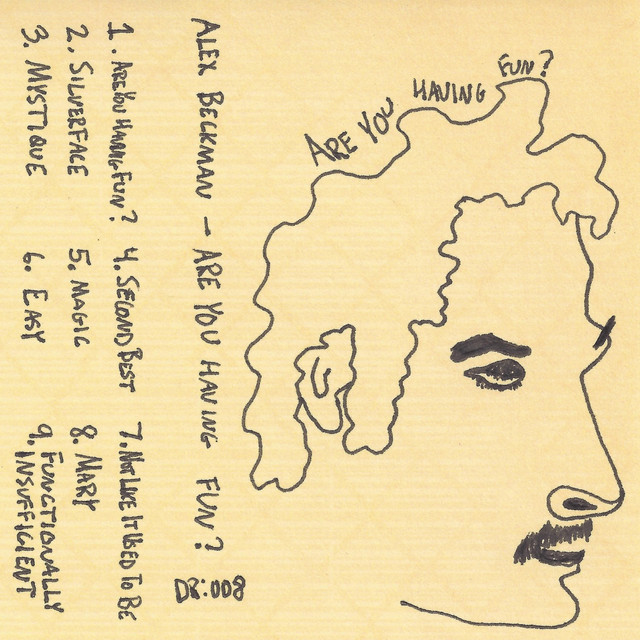 ARE YOU HAVING FUN?
ALEX BECKMAN - ARE YOU HAVING FUN?
1. ARE YOU HAVING FUN?
2. SILVERFACE
3. MYSTIQUE
4. SECOND BEST
5. MAGIC
6. EASY
7. NOT LIKE IT USED TO BE
8. MARY
9. FUNCTIONALLY
INSUFFICIENT
D8:008